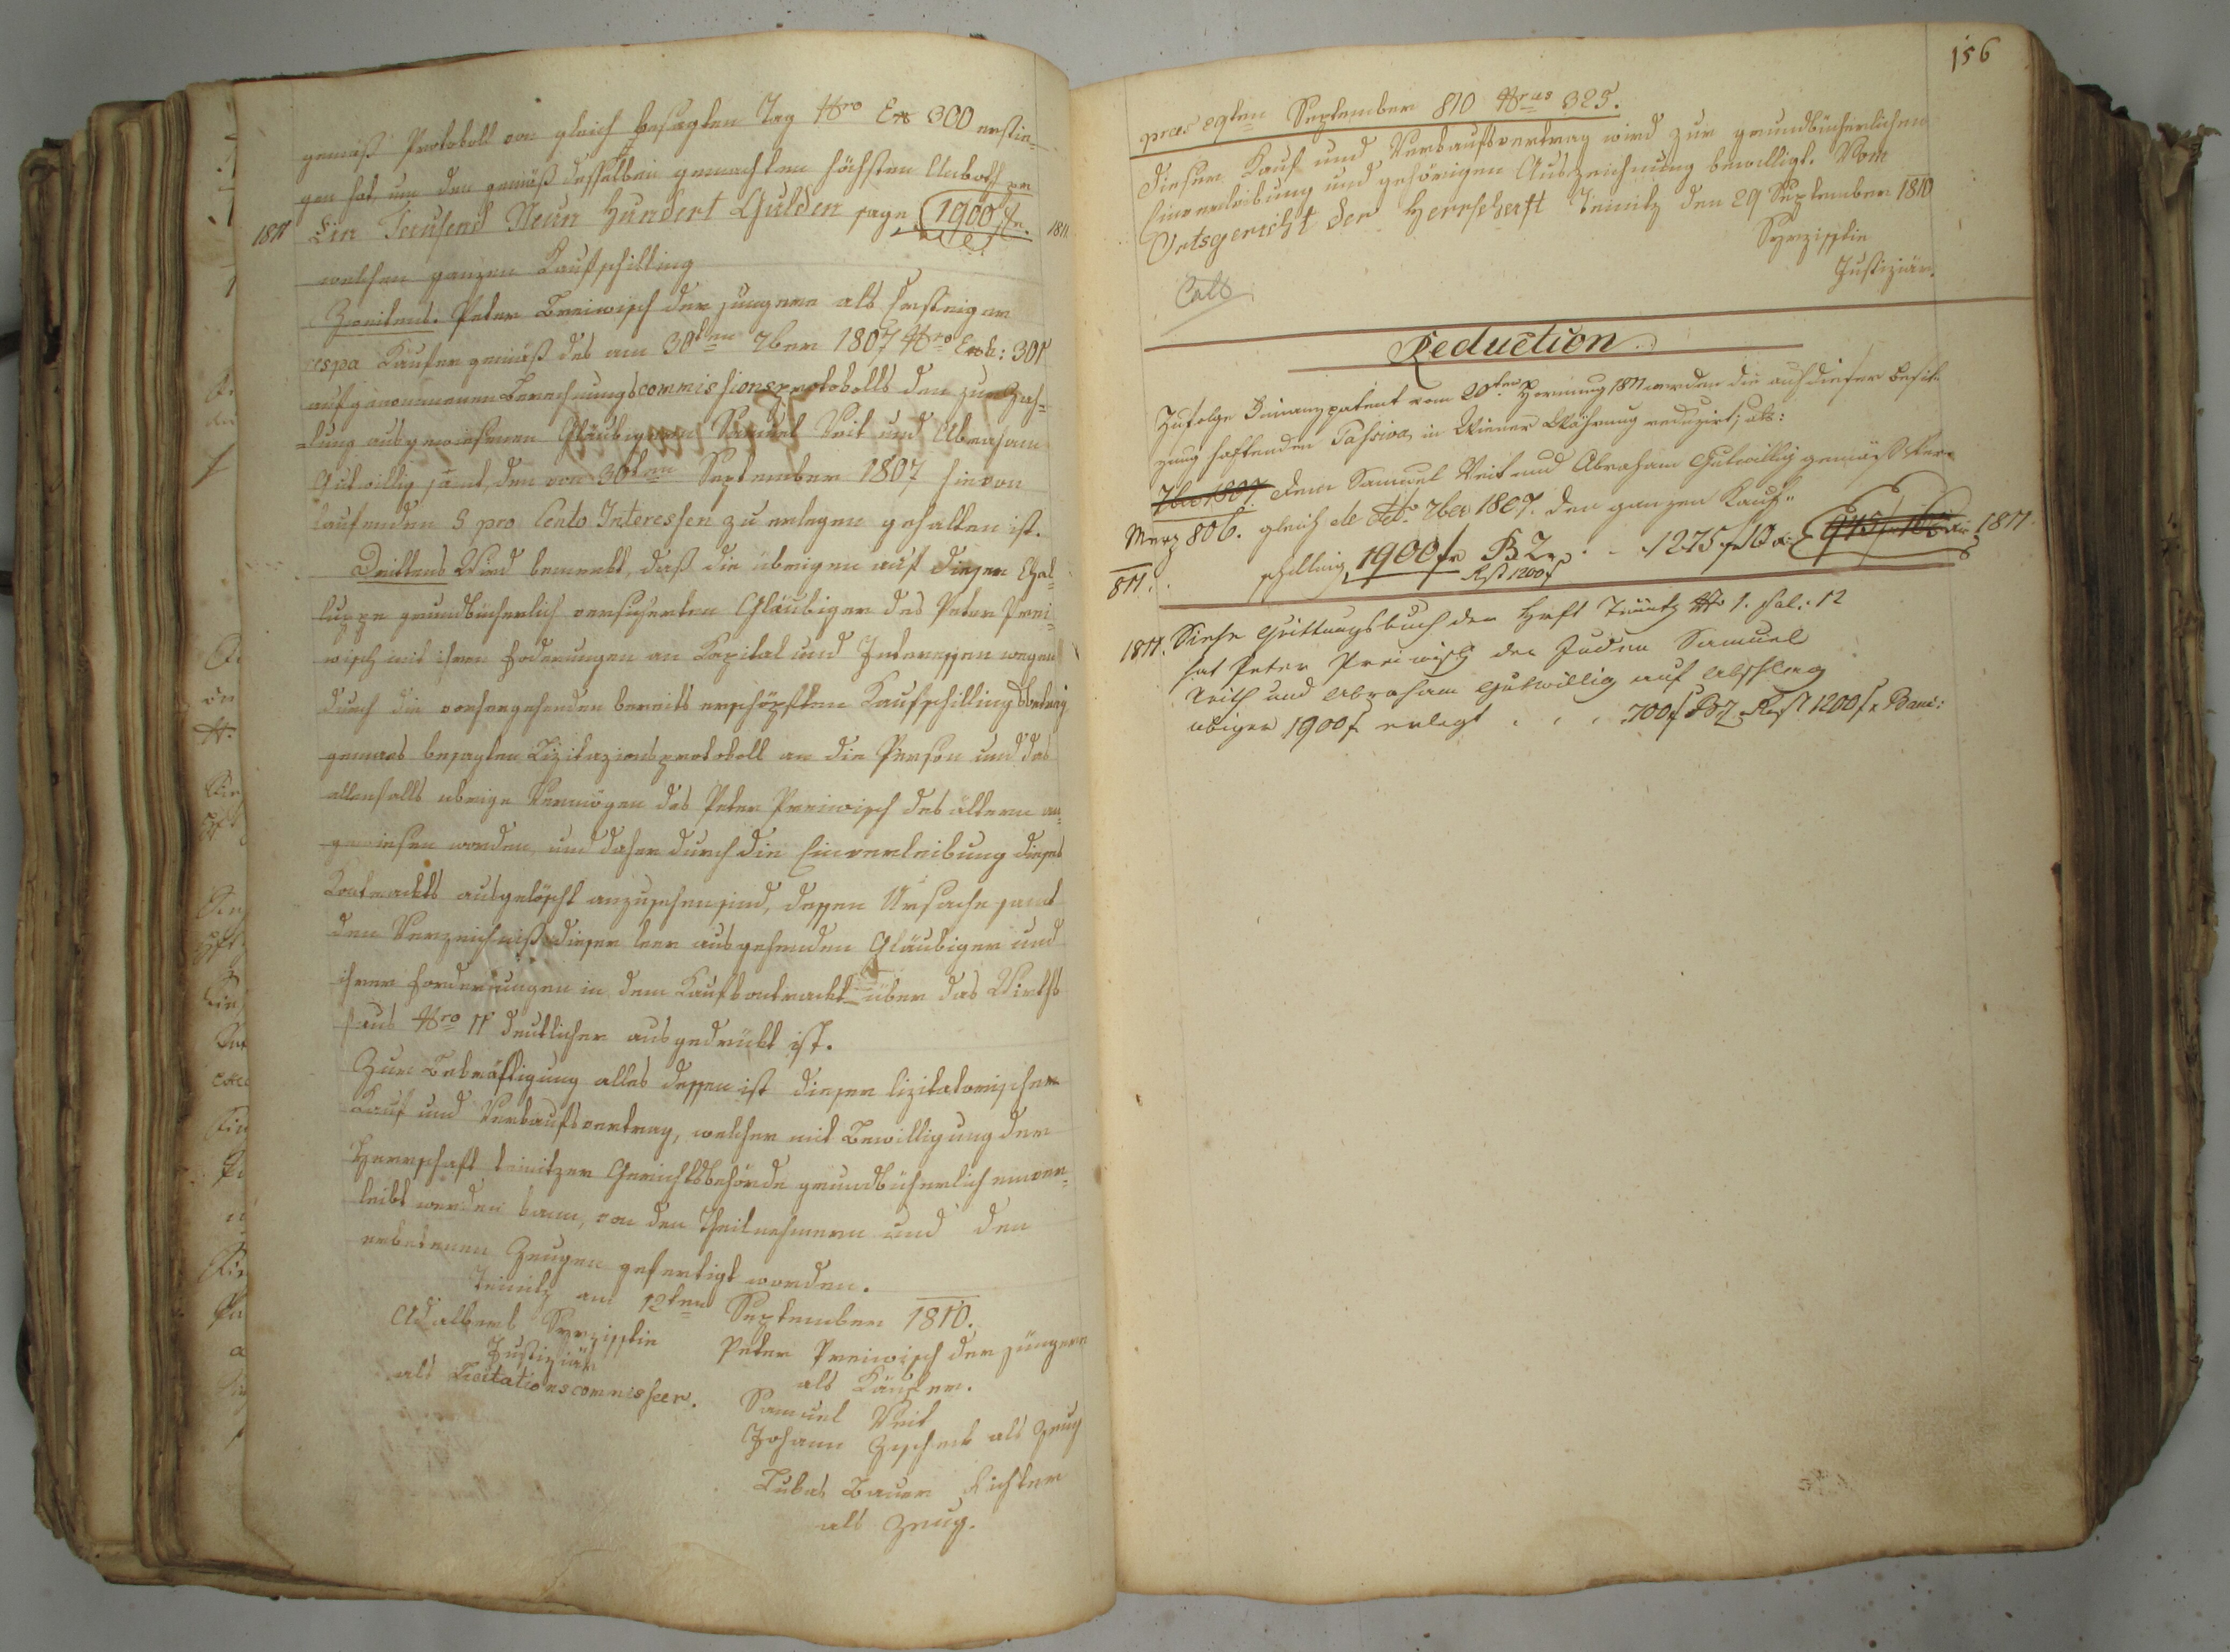 gemäß Protokoll von gleich besagten Tag Nro Exh 300 erstie-
gen hat, um den gemäß desselben gemachten höchsten Anboth pr
1811 Ein Tausend Neun Hundert Gulden sage 1900 fr. 1811
welchen ganzen Kaufschilling
Zweitens. Peter Preiwisch der jüngere als Ersteiger
respe Käufer gemäß des am 30ten 7ber 1807 Nro Exh: 301
aufgenommenen Berechnungscommissionsprotokolls den zur Zah-
lung ausgewiesenen Gläubigern Samuel Veit und Abraham
Gutwillig samt den von 30ten September 1807 hievon
laufenden 5 pro Cento Interessen zu erlegen gehalten ist.
Drittens Wird bemerkt, daß die übrigen auf dieser Chal-
luppe grundbücherlich versicherten Gläubiger des Peter Prei-
wisch mit ihren Foderungen an Kapital und Interessen wegen
durch die vorhergehenden bereits erschöpften Kaufschillingsbetrag
gemaes besagten Lizitazionsprotokoll an die Person und das
allenfalls übrige Vermögen des Peter Preiwisch des ältern an-
gewiesen worden, und daher durch die Einverleibung dieses
Kontrackts ausgelöscht anzusehen sind, dessen Ursache samt
den Verzeichniß dieser leer ausgehenden Gläubiger und
ihrer Forderungen in dem Kaufkontrackt über das Wirths
haus Nro 11 deutlicher ausgedrückt ist.
Zur Bekräftigung alles dessen ist dieser lizitatorischer
Kauf und Verkaufsvertrag, welcher mit Bewilligung der
Herrschaft Teinitzer Gerichtsbehörde grundbücherlich einver-
leibt werden kann, von den Theilnehmern und den
erbetenen Zeugen gefertigt worden.
Teinitz am 12ten September 1810.
Adalbert
Justiziär
als Licitationscommissaer.
Peter Preiwisch der jüngere
als Käufer.
Samuel Veit
Johann als Zeug
Lukas Bauer Richter
als Zeug.
156
praes 29ten September 810 Nrus 325.
Dieser Kauf und Verkaufsvertrag wird zur grundbücherlichen
Einverleibung und gehörigen Auszeichnung bewilligt. Vom
Ortsgericht der Herrschaft Teinitz den 29 September 1810
Justiziär.
Reduction
Zufolge Finanzpatent vom 20ten Hornung 1811 werden die auf dieser Besit-
zung haftenden Passiva in Wiener Währung reduzirt, als:
7ber 1807. dem Samuel Veit und Abraham Gutwillig gemäß
Merz 806. gleich de dto 7ber 1807. den ganzen Kauf-
811. schilling 1900 fr BZ. . . 1275 fr 10 x 1811
Rest 1200 f
1811. Siehe Quittungsbuch der Hrft Teinitz No 1. fol: 12
hat Peter Preiwisch den Juden Samuel
Veith und Abraham Gutwillig auf Abschlag
obiger 1900 f erlegt . . . 700 f BZ Rest 1200 fr Banc: